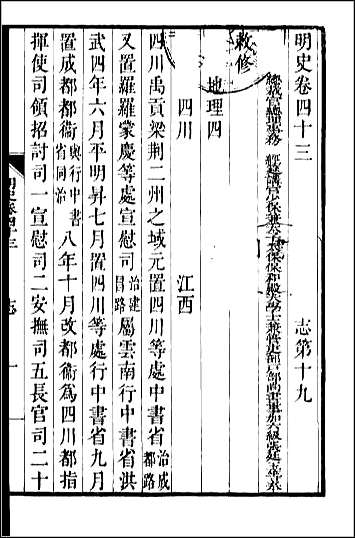 明史卷四十三　志第十九
總裁官總理事務　經筵講官少保兼太子太保保和殿大學士兼管吏部戶部尚書事加六級張廷玉等奉
敕修
地理四
四川　江西
四川禹貢梁荊二州之域元置四川等處行中書省治成都路
又置羅羅蒙慶等處宣慰司治建昌路屬雲南行中書省洪
武四年六月平明昇七月置四川等處行中書省九月
置成都都衛與行中書省同治八年十月改都衛爲四川都指
揮使司領招討司一宣慰司二安撫司五長官司二十